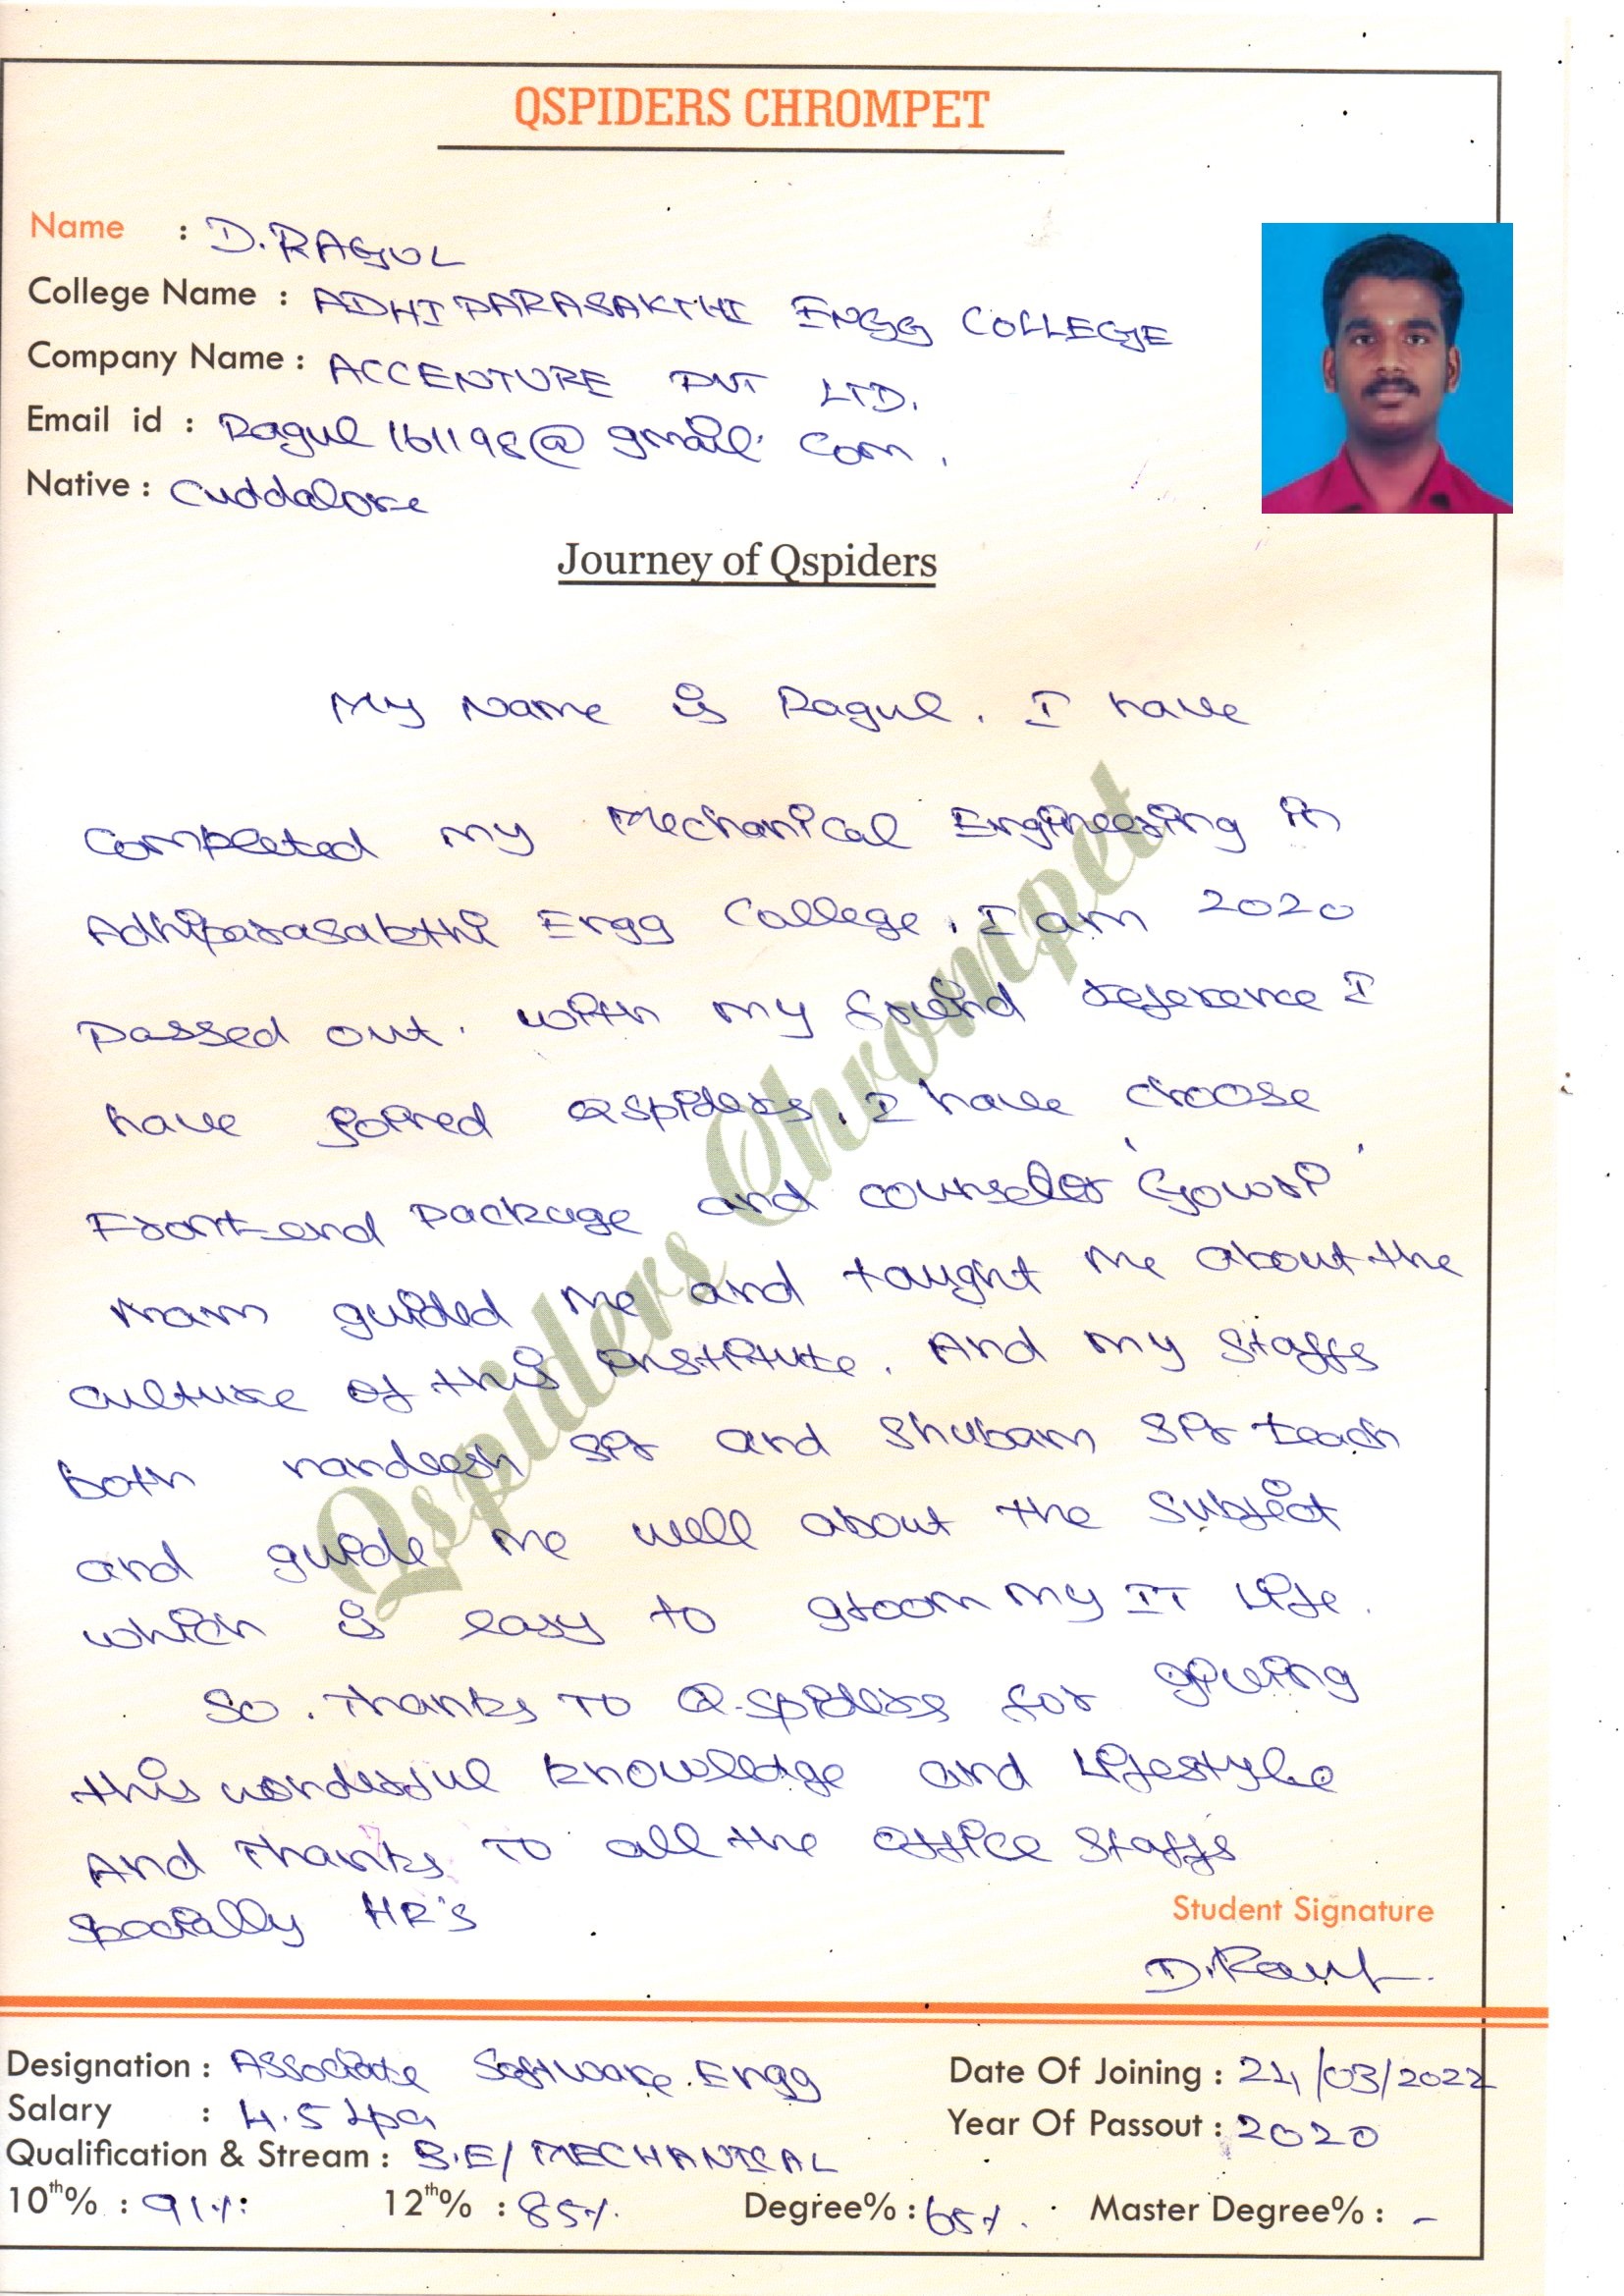 QSPIDERS CHROMPET
Name : D.RAGUL
College Name : ADHIPARASAKTHI ENGG COLLEGE
Company Name : ACCENTURE PVT LTD.
Email id : Ragul161198@gmail.com.
Native : Cuddalore
Journey of Qspiders
My Name is Ragul. I have
Completed my Mechanical Engineering in
Adhiparasakthi Engg College. I am 2020
Passed out. with my friend reference I
have joined Qspiders. I have choose
Front-end package and counselor 'Gowri'
mam guided me and taught me about the
culture of this institute. And my staffs
Both nandeesh sir and Shubam Sir teach
and guide me well about the Subject
which is easy to groom my IT Life.
So. Thanks TO Q-spiders for giving
this wonderful knowledge and Lifestyle
And Thanks TO all the office staffs
Specially HR's
Student Signature
Qspiders Chrompet
Designation : Associate Software Engg
Date Of Joining : 24/03/2022
Salary : 4.5 Lpa
Year Of Passout : 2020
Qualification & Stream : B.E/ MECHANICAL
10th% : 91%. 12th% : 85%. Degree% : 65%. Master Degree% : -